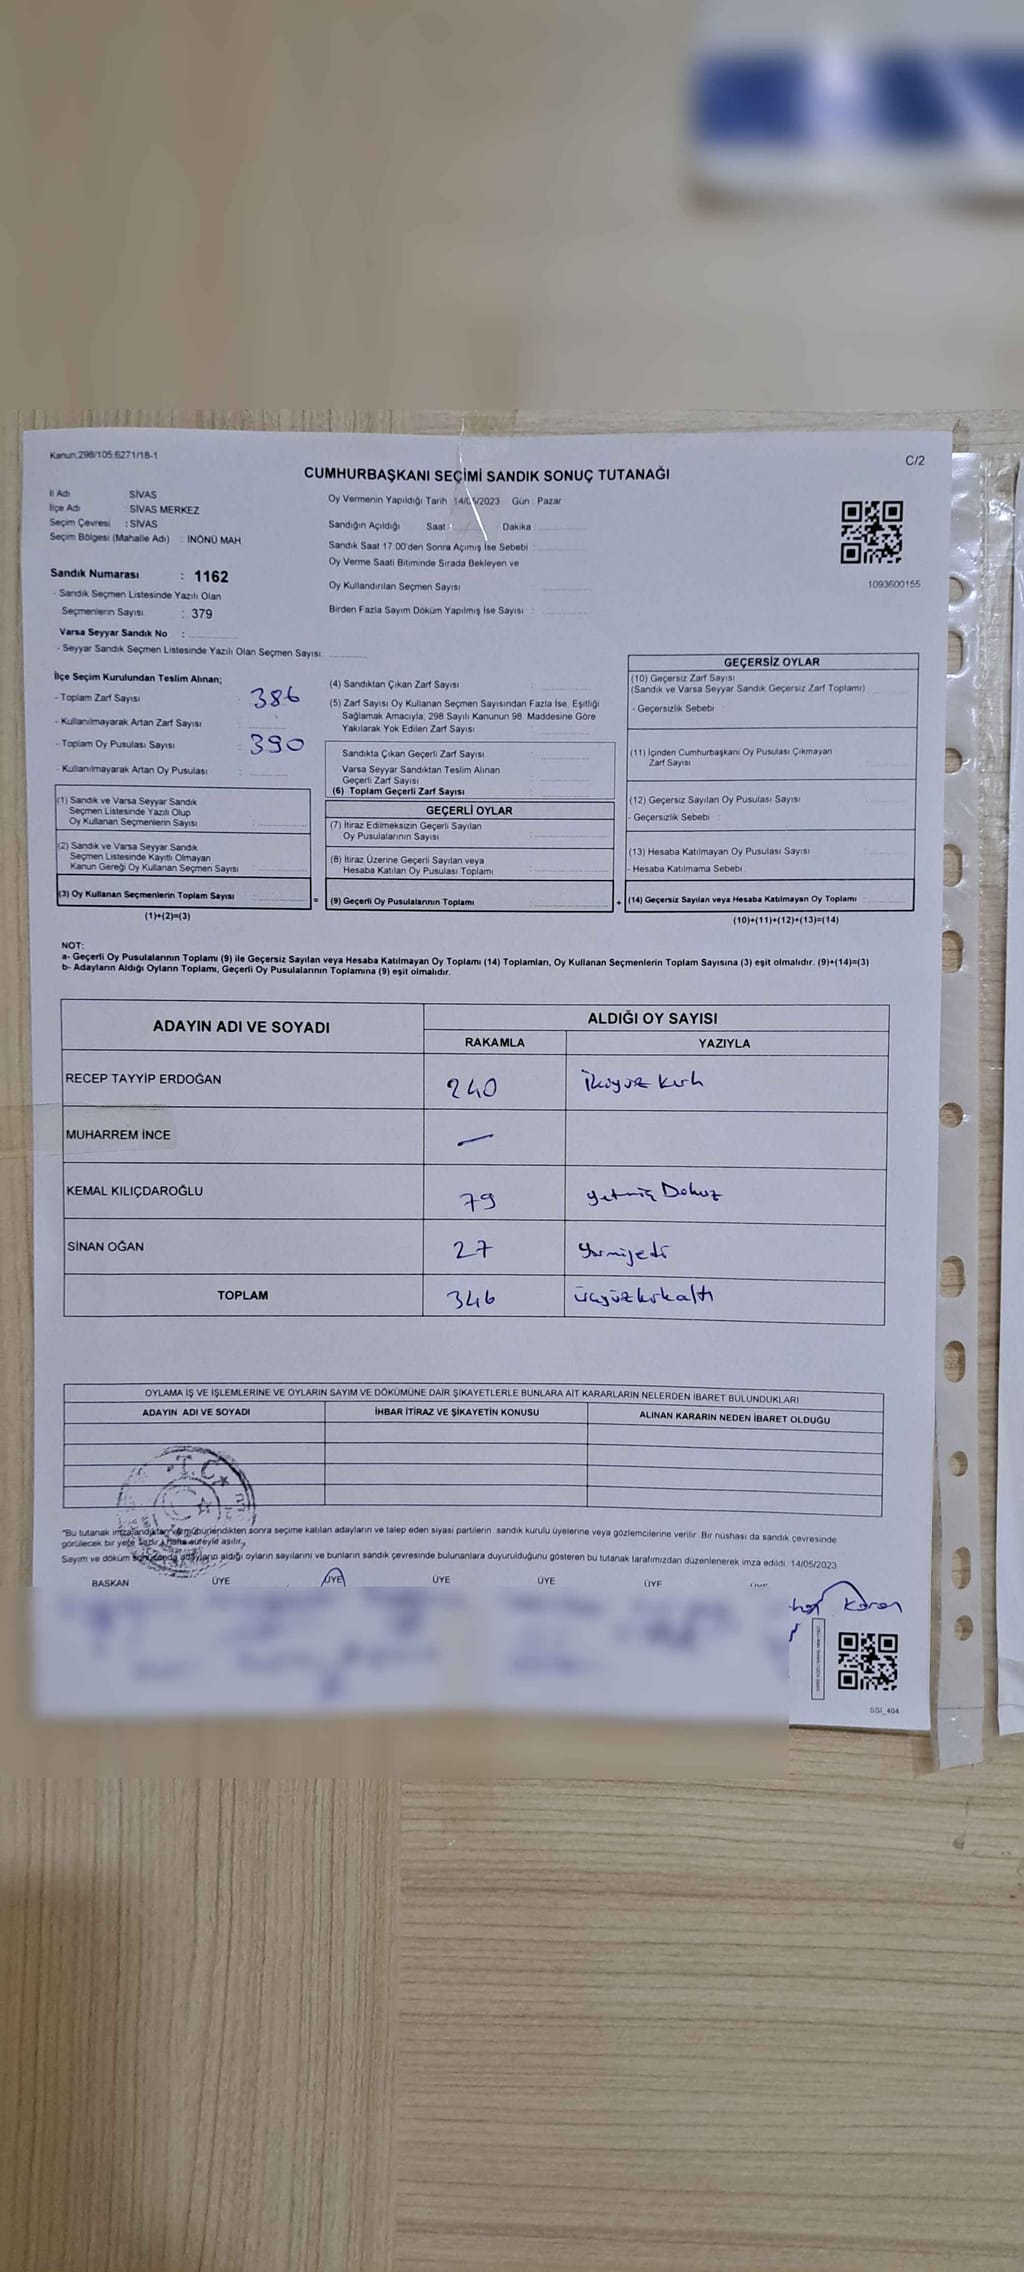 Kanun:298/105,6271/18-1
C/2
CUMHURBAŞKANI SEÇİMİ SANDIK SONUÇ TUTANAĞI
İl Adı : SİVAS
İlçe Adı : SİVAS MERKEZ
Seçim Çevresi : SİVAS
Seçim Bölgesi (Mahalle Adı) : İNÖNÜ MAH.
Sandık Numarası : 1162
- Sandık Seçmen Listesinde Yazılı Olan
Seçmenlerin Sayısı : 379
Varsa Seyyar Sandık No :
- Seyyar Sandık Seçmen Listesinde Yazılı Olan Seçmen Sayısı
Oy Vermenin Yapıldığı Tarih : 14/05/2023 Gün : Pazar
Sandığın Açıldığı Saat : Dakika :
Sandık Saat 17:00'den Sonra Açımış İse Sebebi :
Oy Verme Saati Bitiminde Sırada Bekleyen ve
Oy Kullandırılan Seçmen Sayısı :
Birden Fazla Sayım Döküm Yapılmış İse Sayısı :
1093600155
İlçe Seçim Kurulundan Teslim Alınan;
- Toplam Zarf Sayısı : 386
- Kullanılmayarak Artan Zarf Sayısı :
- Toplam Oy Pusulası Sayısı : 390
- Kullanılmayarak Artan Oy Pusulası :
(1) Sandık ve Varsa Seyyar Sandık
Seçmen Listesinde Yazılı Olup
Oy Kullanan Seçmenlerin Sayısı :
(2) Sandık ve Varsa Seyyar Sandık
Seçmen Listesinde Kayıtlı Olmayan
Kanun Gereği Oy Kullanan Seçmen Sayısı :
(3) Oy Kullanan Seçmenlerin Toplam Sayısı :
(1)+(2)=(3)
(4) Sandıktan Çıkan Zarf Sayısı :
(5) Zarf Sayısı Oy Kullanan Seçmen Sayısından Fazla İse, Eşitliği
Sağlamak Amacıyla, 298 Sayılı Kanunun 98. Maddesine Göre
Yakılarak Yok Edilen Zarf Sayısı :
Sandıkta Çıkan Geçerli Zarf Sayısı :
Varsa Seyyar Sandıktan Teslim Alınan
Geçerli Zarf Sayısı :
(6) Toplam Geçerli Zarf Sayısı :
GEÇERLİ OYLAR
(7) İtiraz Edilmeksizin Geçerli Sayılan
Oy Pusulalarının Sayısı :
(8) İtiraz Üzerine Geçerli Sayılan veya
Hesaba Katılan Oy Pusulası Toplamı :
= (9) Geçerli Oy Pusulalarının Toplamı :
GEÇERSİZ OYLAR
(10) Geçersiz Zarf Sayısı
(Sandık ve Varsa Seyyar Sandık Geçersiz Zarf Toplamı)
- Geçersizlik Sebebi :
(11) İçinden Cumhurbaşkanı Oy Pusulası Çıkmayan
Zarf Sayısı :
(12) Geçersiz Sayılan Oy Pusulası Sayısı :
- Geçersizlik Sebebi :
(13) Hesaba Katılmayan Oy Pusulası Sayısı :
- Hesaba Katılmama Sebebi :
+ (14) Geçersiz Sayılan veya Hesaba Katılmayan Oy Toplamı :
(10)+(11)+(12)+(13)=(14)
NOT:
a- Geçerli Oy Pusulalarının Toplamı (9) ile Geçersiz Sayılan veya Hesaba Katılmayan Oy Toplamı (14) Toplamları, Oy Kullanan Seçmenlerin Toplam Sayısına (3) eşit olmalıdır. (9)+(14)=(3)
b- Adayların Aldığı Oyların Toplamı, Geçerli Oy Pusulalarının Toplamına (9) eşit olmalıdır.
ADAYIN ADI VE SOYADI ALDIĞI OY SAYISI
RAKAMLA YAZIYLA
RECEP TAYYİP ERDOĞAN 240 İkiyüz kırk
MUHARREM İNCE —
KEMAL KILIÇDAROĞLU 79 yetmiş Dokuz
SİNAN OĞAN 27 yirmiyedi
TOPLAM 346 üçyüzkırkaltı
OYLAMA İŞ VE İŞLEMLERİNE VE OYLARIN SAYIM VE DÖKÜMÜNE DAİR ŞİKAYETLERLE BUNLARA AİT KARARLARIN NELERDEN İBARET BULUNDUKLARI
ADAYIN ADI VE SOYADI İHBAR İTİRAZ VE ŞİKAYETİN KONUSU ALINAN KARARIN NEDEN İBARET OLDUĞU
T.C.
"Bu tutanak imzalandıktan ve mühürlendikten sonra seçime katılan adayların ve talep eden siyasi partilerin sandık kurulu üyelerine veya gözlemcilerine verilir. Bir nüshası da sandık çevresinde
görülecek bir yere bir hafta süreyle asılır.
Sayım ve döküm sonucunda adayların aldığı oyların sayılarını ve bunların sandık çevresinde bulunanlara duyurulduğunu gösteren bu tutanak tarafımızdan düzenlenerek imza edildi. 14/05/2023
BAŞKAN ÜYE ÜYE ÜYE ÜYE ÜYE
Karan
SSI_404